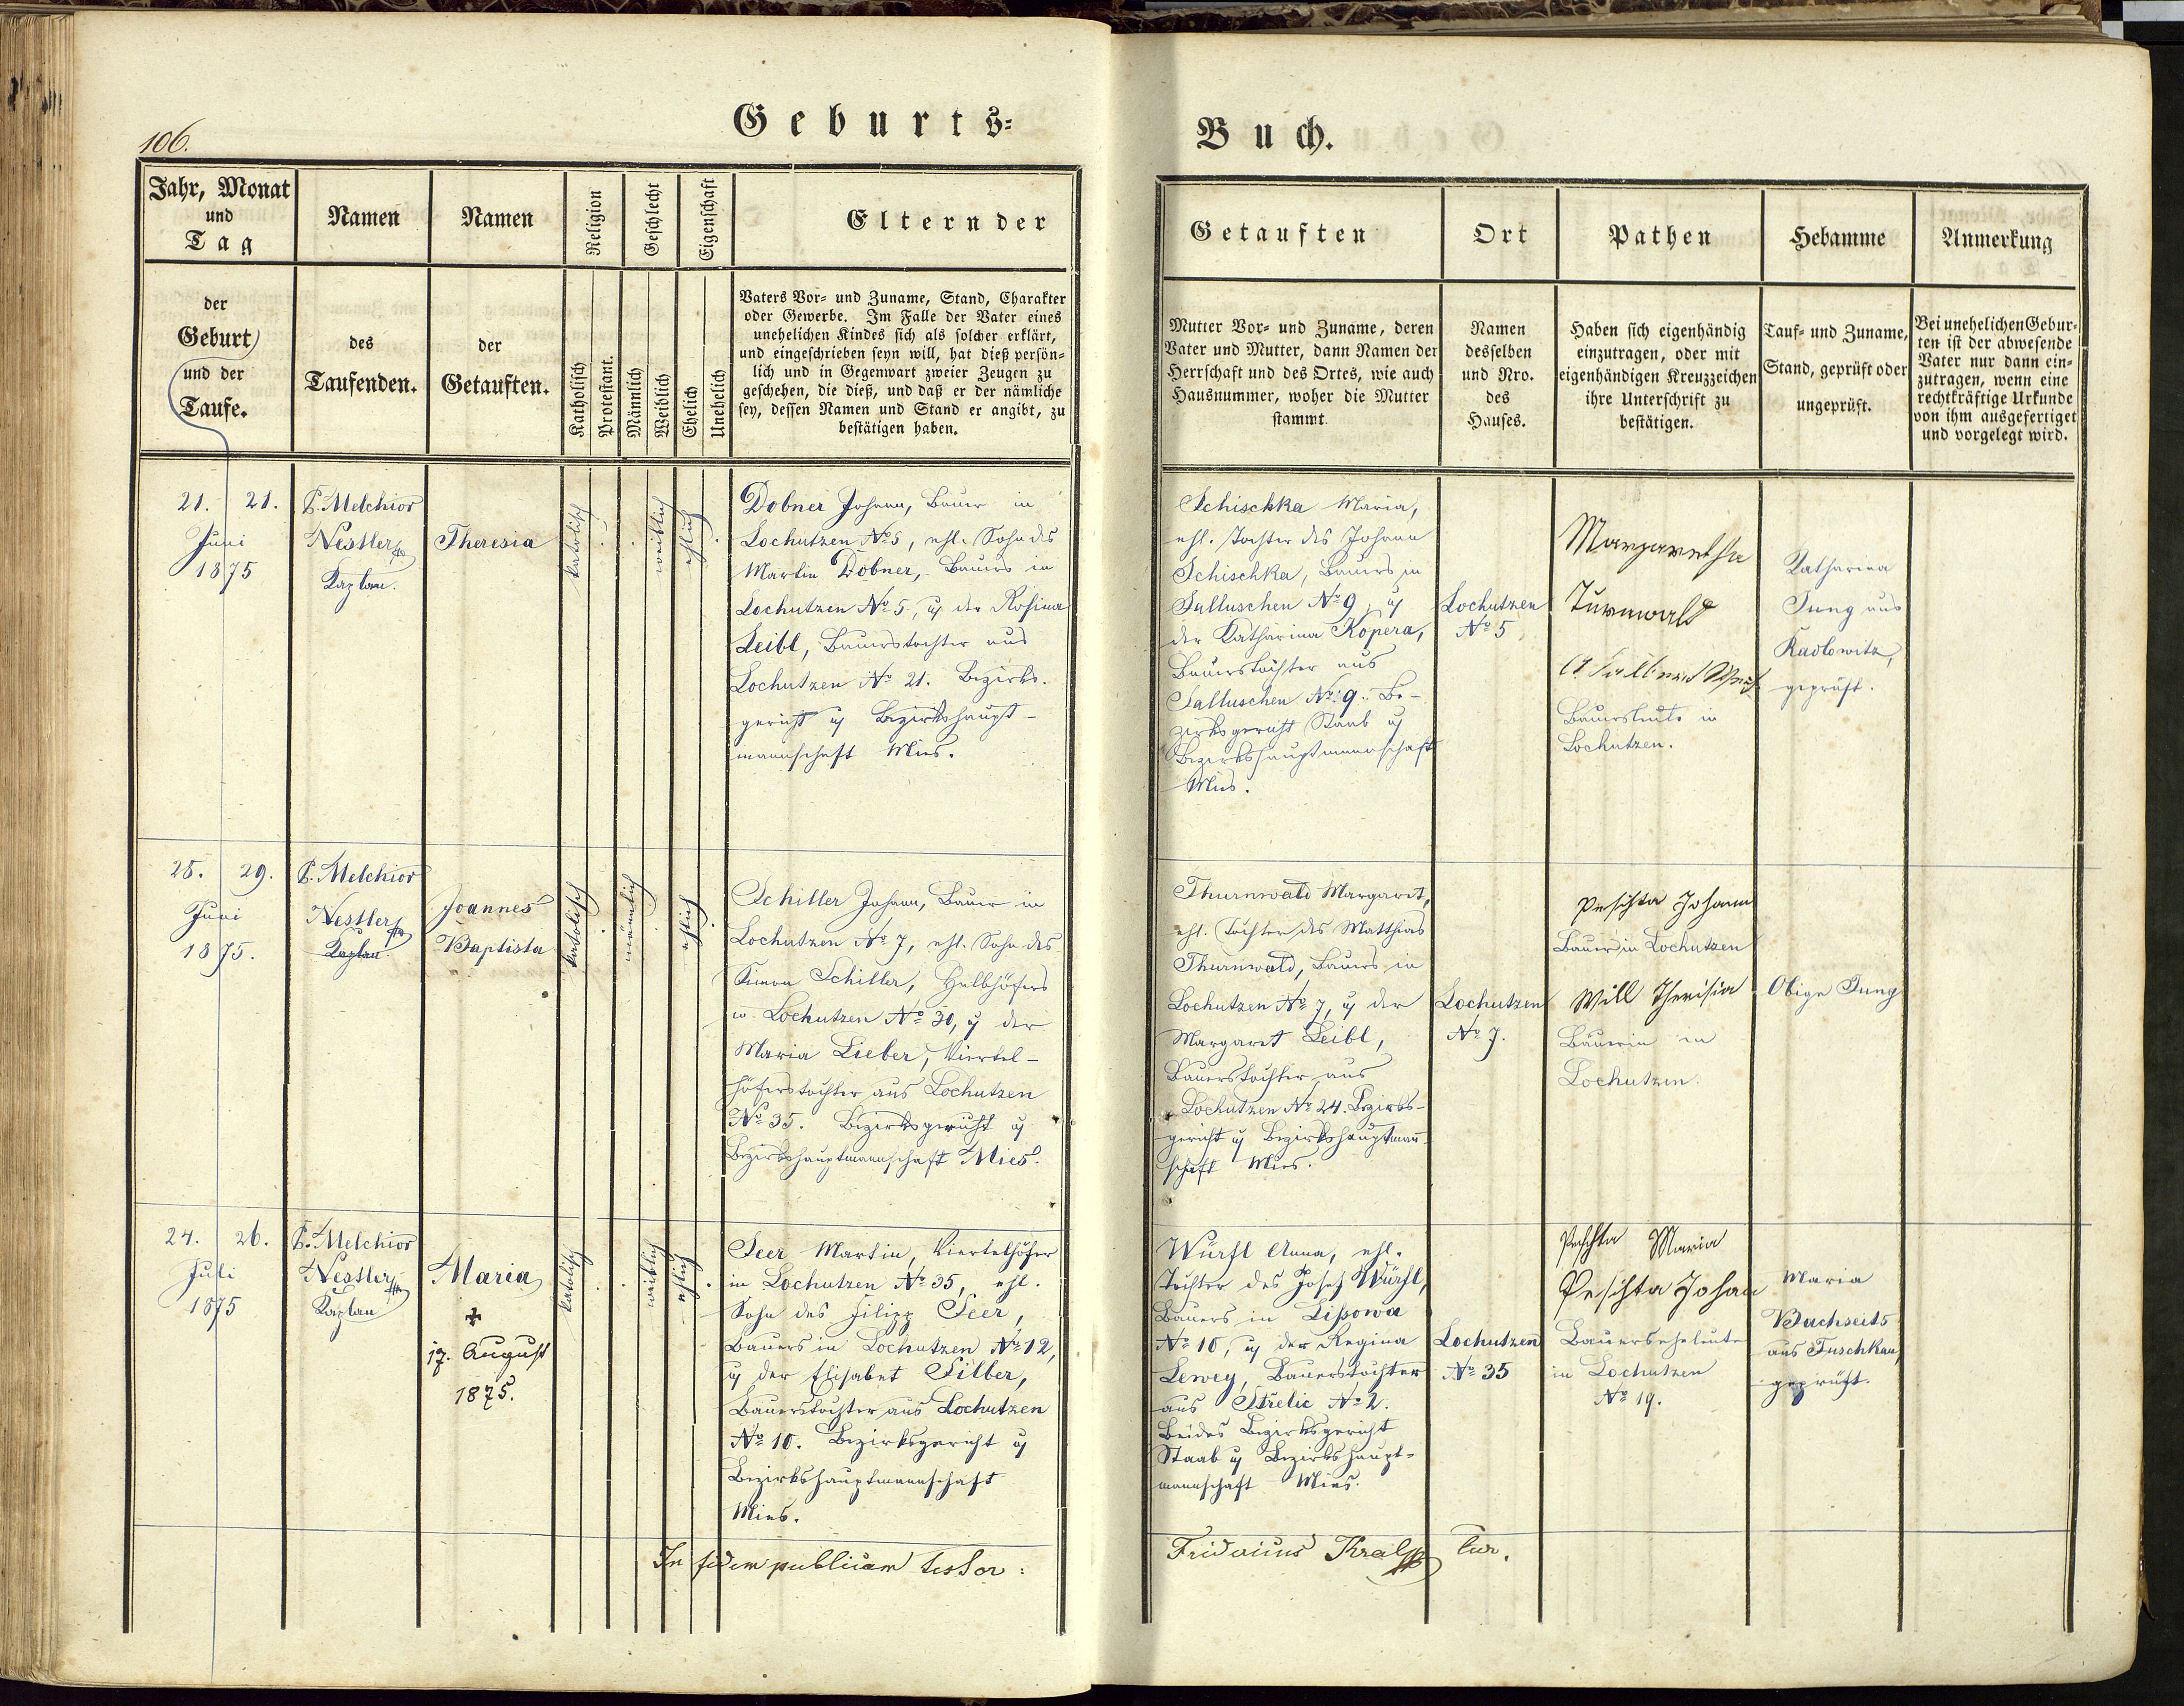 106.
Geburts-
Buch.
Jahr, Monat
und
Tag
Namen
Namen
Religion
Geschlecht
Eigenschaft
Eltern der
der
Geburt
und der
Taufe.
des
Taufenden.
der
Getauften.
Katholisch
Protestant.
Männlich
Weiblich
Ehelich
Unehelich
Vaters Vor- und Zuname, Stand, Charakter
oder Gewerbe. Im Falle der Vater eines
unehelichen Kindes sich als solcher erklärt,
und eingeschrieben seyn will, hat dieß persön-
lich und in Gegenwart zweier Zeugen zu
geschehen, die dieß, und daß er der nämliche
sey, dessen Namen und Stand er angibt, zu
bestätigen haben.
Getauften
Ort
Pathen
Hebamme
Anmerkung
Mutter Vor- und Zuname, deren
Vater und Mutter, dann Namen der
Herrschaft und des Ortes, wie auch
Hausnummer, woher die Mutter
stammt.
Namen
desselben
und Nro.
des
Hauses.
Haben sich eigenhändig
einzutragen, oder mit
eigenhändigen Kreuzzeichen
ihre Unterschrift zu
bestätigen.
Tauf- und Zuname,
Stand, geprüft oder
ungeprüft.
Bei unehelichen Gebur-
ten ist der abwesende
Vater nur dann ein-
zutragen, wenn eine
rechtkräftige Urkunde
von ihm ausgefertiget
und vorgelegt wird.
21. 21.
Juni
1875
P. Melchior
Nestler
Kaplan.
Theresia
katolisch
weiblich
ehlich
Dobner Johann, Bauer in
Lochutzen No 5, ehl. Sohn des
Martin Dobner, Bauers in
Lochutzen No 5, u der Rosina
Leibl, Bauerstochter aus
Lochutzen No 21. Bezirks-
gericht u Bezirkshaupt-
mannschaft Mies.
Schischka Maria,
ehl. Tochter des Johann
Schischka, Bauers in
Sulluschen No 9, u
der Katharina Kopera,
Bauerstochter aus
Salluschen No 9. Be-
zirksgericht Staab u
Bezirkshauptmannschaft
Mies.
Lochutzen
No 5
Margaretha
Turnwald
Bauersleute in
Lochutzen.
Katharina
Jung aus
Kadlowitz,
geprüft.
28. 29.
Juni
1875.
P. Melchior
Nestler
Kaplan
Joannes
Baptista
katolisch
männlich
ehlich
Schiller Johann, Bauer in
Lochutzen No 7, ehl. Sohn des
Simon Schiller, Halbhöfers
in Lochutzen No 30, u der
Maria Lieber, Viertel-
höferstochter aus Lochutzen
No 35. Bezirksgericht u
Bezirkshauptmannschaft Mies.
Thurnwald Margaret,
ehl. Tochter des Matthias
Thurnwald, Bauers in
Lochutzen No 7, u der
Margaret Leibl,
Bauerstochter aus
Lochutzen No 24. Bezirks-
gericht u Bezirkshauptmann-
schaft Mies.
Lochutzen
No 7.
Peschta Johann
Bauer in Lochutzen
Will Theresia
Bäuerin in
Lochutzen.
Obige Jung
24. 26.
Juli
1875
P. Melchior
Nestler
Kaplan
Maria
17. August
1875.
katolisch
weiblich
ehlich
Seer Martin, Viertelhöfer
in Lochutzen No 35, ehl.
Sohn des Filipp Seer,
Bauers in Lochutzen No 12,
u der Elisabet Silber,
Bauerstochter aus Lochutzen
No 10. Bezirksgericht u
Bezirkshauptmannschaft
Mies.
Würfl Anna, ehl.
Tochter des Josef Würfl,
Bauers in Lissowa
No 10, u der Regina
Lewey, Bauerstochter
aus Strelic No 2.
Beides Bezirksgericht
Staab u Bezirkshaupt-
mannschaft Mies.
Lochutzen
No 35
Peschta Maria
Peschta Johan
Bauerseheleute
in Lochutzen
No 19.
Maria
Bachseits
aus Tuschkau,
geprüft.
In fidem publicam testor:
Fridericus Kral Cur.